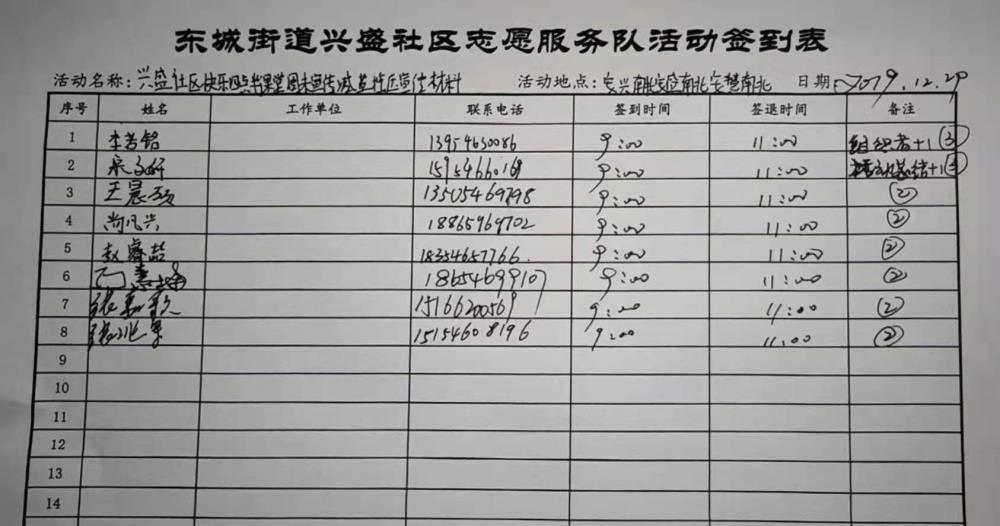 东城街道兴盛社区志愿服务队活动签到表
活动名称：兴盛社区快乐 课堂周末宣传 社区宣传材料 活动地点：安兴南北 安慧南北 日期 2019.12.29
序号 姓名 工作单位 联系电话 签到时间 签退时间 备注
1 李若铭 13954630086 9:00 11:00 组织者+1 ③
2 15954660168 9:00 11:00 总结+1 ③
3 王晨硕 13505469798 9:00 11:00 ②
4 尚凡兴 18865969702 9:00 11:00 ②
5 赵睿喆 18354657766 9:00 11:00 ②
6 18654699107 9:00 11:00 ②
7 张 歌 15166200569 9:00 11:00 ②
8 张兆 15154608196 9:00 11:00 ②
9
10
11
12
13
14